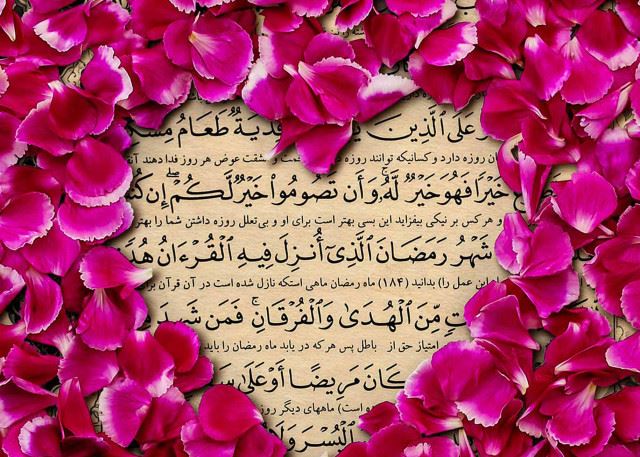 عَلَى ٱلَّذِينَ فِدْيَةٌ طَعَامُ
روزه دارد و کسانیکه توانند روزه و مشقت عوض هر روز فدا دهند
خَيْرًا فَهُوَ خَيْرٌ لَّهُۥ وَأَن تَصُومُوا۟ خَيْرٌ لَّكُمْ إِن
و هر کس بر نیکی بیفزاید این بسی بهتر است برای او و بی‌تعلل روزه داشتن شما را بهتر
شَهْرُ رَمَضَانَ ٱلَّذِىٓ أُنزِلَ فِيهِ ٱلْقُرْءَانُ
این عمل را) بدانید (۱۸۴) ماه رمضان ماهی استکه نازل شده است در آن قرآن
مِّنَ ٱلْهُدَىٰ وَٱلْفُرْقَانِ فَمَن شَهِدَ
امتیاز حق از باطل پس هر که در یابد ماه رمضان را باید
كَانَ مَرِيضًا أَوْ عَلَىٰ
است) ماههای دیگر روز
ٱلْيُسْرَ